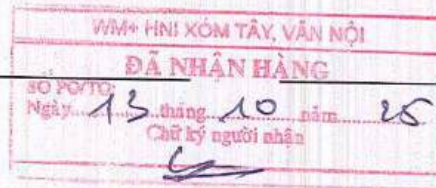 WM+ HNI XÓM TÂY, VÂN NỘI
ĐÃ NHẬN HÀNG
SỐ PO/TO:
Ngày 13 tháng 10 năm 25
Chữ ký người nhận